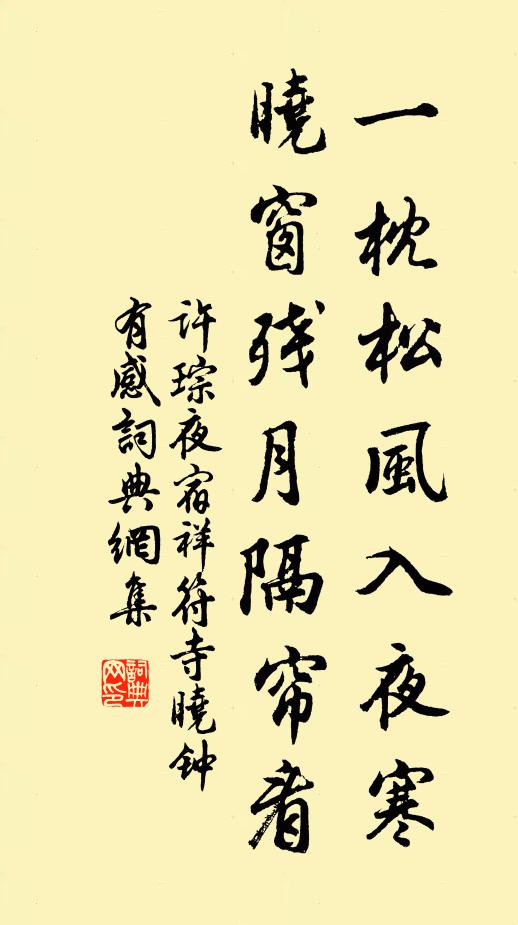 一枕松風入夜寒
曉窗残月隔帘看
许琮夜宿祥符寺曉钟
有感詞典網集
詞典
网印